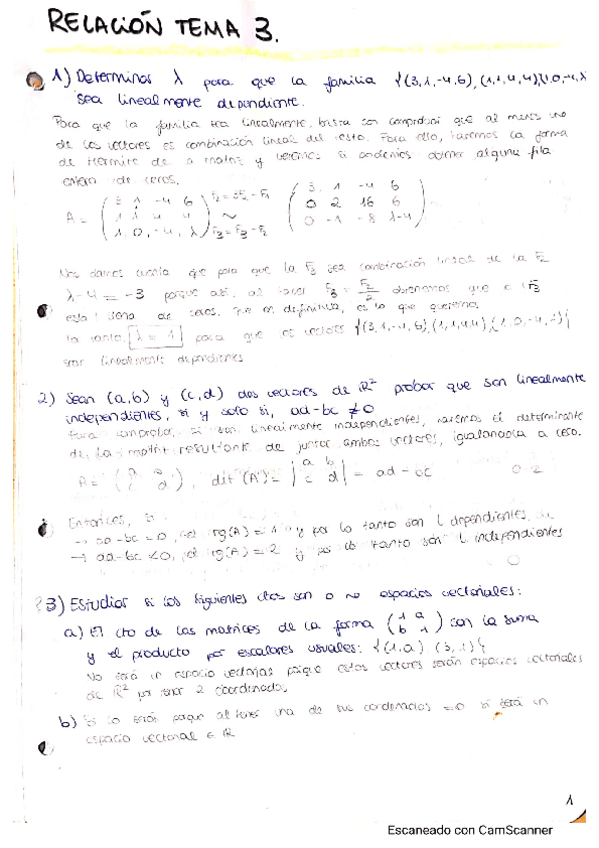 RELACIÓN TEMA 3.
1) Determinar λ para que la familia {(3,1,-4,6), (1,1,4,4), (1,0,-4,λ
sea linealmente dependiente.
Para que la familia sea linealmente, basta con comprobar que al menos uno
de los vectores es combinación lineal del resto. Para ello, haremos la forma
de Hermite de la matriz y veremos si podemos obtener alguna fila
entera de ceros.
A = ( 3 1 -4 6 F2 = 3F2 - F1 ( 3 1 -4 6
1 1 4 4 ~ 0 2 16 6
1 0 -4 λ ) F3 = F3 - F2 0 -1 -8 λ-4 )
Nos damos cuenta que para que la F3 sea combinación lineal de la F2
λ-4 = -3 porque así, al hacer F3 = F2/2 obtenemos que F3
esta llena de ceros. en definitiva, es lo que queremos
lo tanto, λ = 1 para que los vectores {(3,1,-4,6), (1,1,4,4), (1,0,-4,1)}
sean linealmente dependientes
2) Sean (a,b) y (c,d) dos vectores de R² probar que son linealmente
independientes, si y solo si, ad-bc ≠ 0
Para comprobar si son linealmente independientes, haremos el determinante
de la matriz resultante de juntar ambos vectores, igualandola a cero.
A = ( a b c d ), det (A) = | a b c d | = ad - bc
Entonces, si
→ ad-bc = 0, el rg(A) = 1 y por lo tanto son l dependientes
→ ad-bc ≠ 0, el rg(A) = 2 y por lo tanto son l independientes
3) Estudiar si los siguientes ctos son o no espacios vectoriales:
a) El cto de las matrices de la forma ( 1 a b 1 ) con la suma
y el producto por escalares usuales: {(1,a) (b,1)}
No será un espacio porque estos vectores serán espacios vectoriales
de R² por tener 2 coordenadas
b) Si lo serán porque al tener una de sus cordenadas = 0 si será un
espacio vectorial ∈ R
1
Escaneado con CamScanner